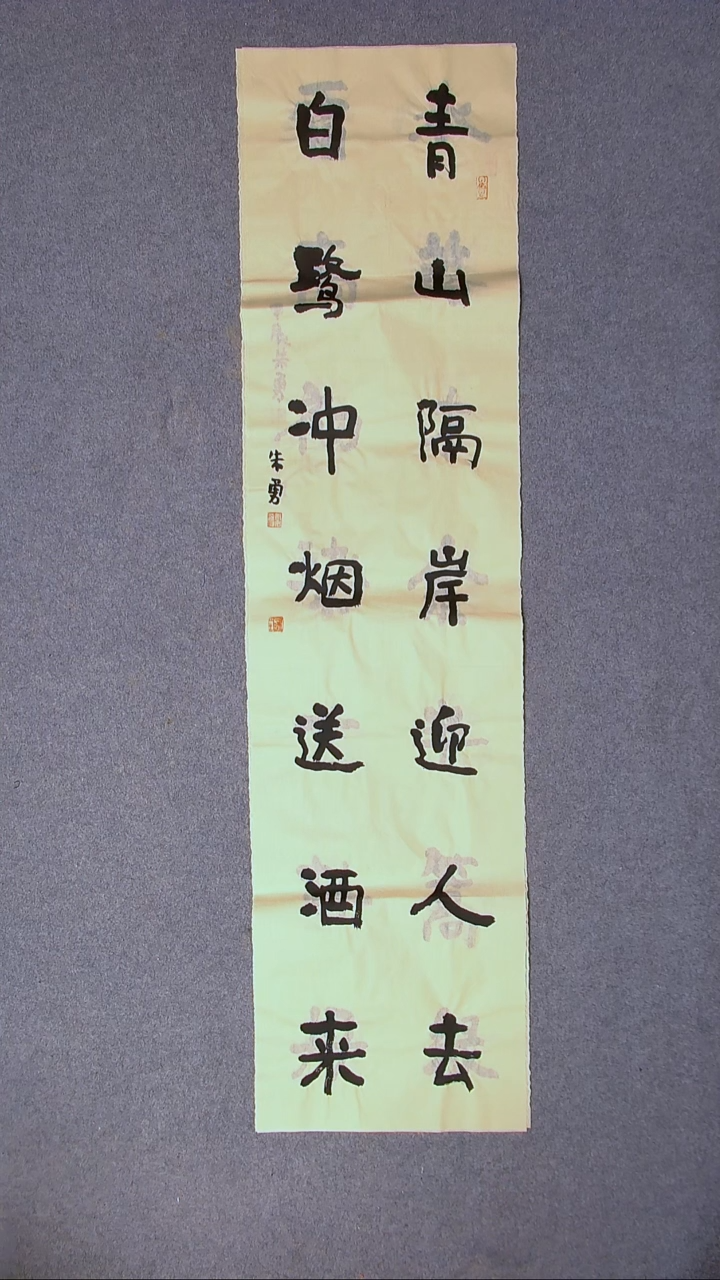 青山隔岸迎人去
白鹭冲烟送酒来
朱勇